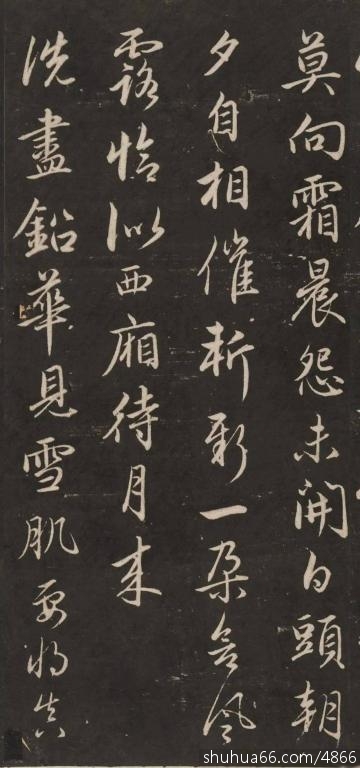 莫向霜晨怨未開白頭朝
夕自相催斬新一朶含風
露恰似西廂待月來
洗盡鉛華見雪肌要將真
shuhua66.com/4866